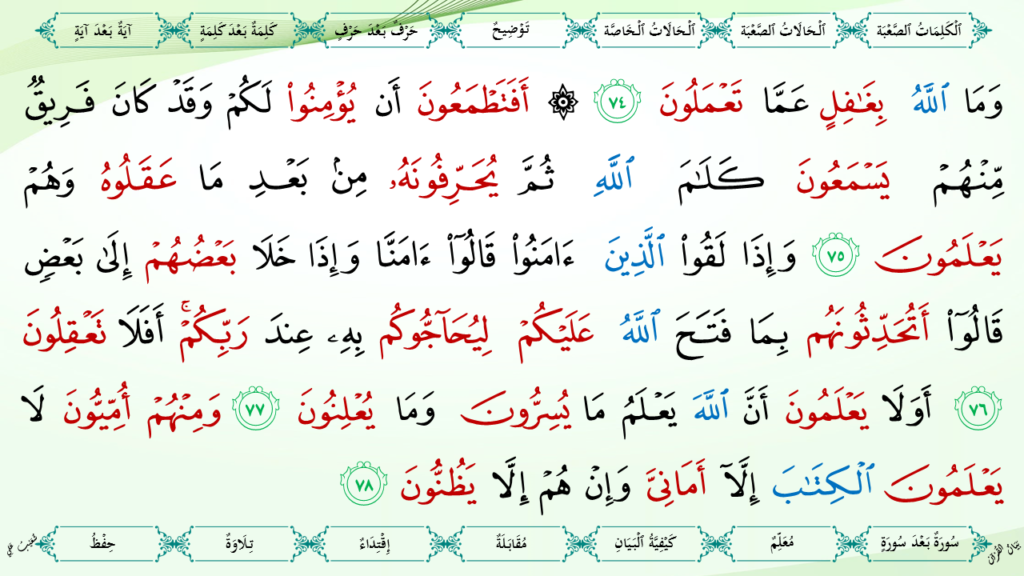 ٱلْكَلِمَاتُ ٱلصَّعْبَة ٱلْحَالَاتُ ٱلصَّعْبَة ٱلْحَالَاتُ ٱلْخَاصَّة تَوْضِيحٌ حَرْفٌ بَعْدَ حَرْفٍ كَلِمَةٌ بَعْدَ كَلِمَةٍ آيَةٌ بَعْدَ آيَةٍ
وَمَا ٱللَّهُ بِغَٰفِلٍ عَمَّا تَعۡمَلُونَ ٧٤ ۞ أَفَتَطۡمَعُونَ أَن يُؤۡمِنُواْ لَكُمۡ وَقَدۡ كَانَ فَرِيقٞ
مِّنۡهُمۡ يَسۡمَعُونَ كَلَٰمَ ٱللَّهِ ثُمَّ يُحَرِّفُونَهُۥ مِنۢ بَعۡدِ مَا عَقَلُوهُ وَهُمۡ
يَعۡلَمُونَ ٧٥ وَإِذَا لَقُواْ ٱلَّذِينَ ءَامَنُواْ قَالُوٓاْ ءَامَنَّا وَإِذَا خَلَا بَعۡضُهُمۡ إِلَىٰ بَعۡضٖ
قَالُوٓاْ أَتُحَدِّثُونَهُم بِمَا فَتَحَ ٱللَّهُ عَلَيۡكُمۡ لِيُحَآجُّوكُم بِهِۦ عِندَ رَبِّكُمۡۚ أَفَلَا تَعۡقِلُونَ
٧٦ أَوَلَا يَعۡلَمُونَ أَنَّ ٱللَّهَ يَعۡلَمُ مَا يُسِرُّونَ وَمَا يُعۡلِنُونَ ٧٧ وَمِنۡهُمۡ أُمِّيُّونَ لَا
يَعۡلَمُونَ ٱلۡكِتَٰبَ إِلَّآ أَمَانِيَّ وَإِنۡ هُمۡ إِلَّا يَظُنُّونَ ٧٨
سُورَةٌ بَعْدَ سُورَةٍ مُعَلِّمٌ كَيْفِيَّةُ الْبَيَانِ مُقَابَلَةٌ إِقْتِدَاءٌ تِلَاوَةٌ حِفْظٌ
بَيَانُ القُرْآن